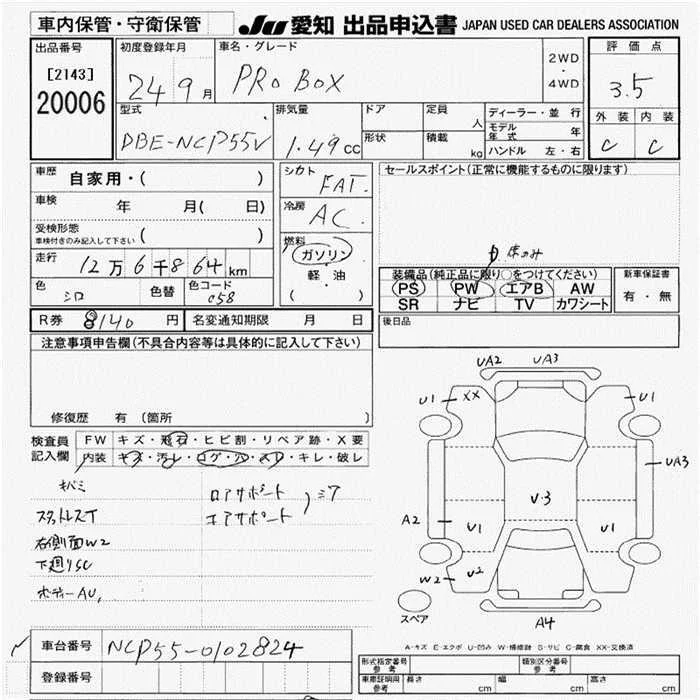 車内保管・守衛保管
JU 愛知 出品申込書 JAPAN USED CAR DEALERS ASSOCIATION
出品番号
[2143]
20006
初度登録年月
24 9 月
車名・グレード
PROBOX
2WD
・
4WD
評価点
3.5
外装 内装
C C
型式
DBE-NCP55V
排気量
1.49 CC
ドア
形状
定員
人
積載
kg
ディーラー・並行
モデル年式 年
ハンドル 左・右
車歴 自家用・( )
車検 年 月( 日)
受検形態
車検付きのみ記入して下さい ( )
走行 12万6千864km
色 シロ
色替
色コード 058
シカト FAT.
冷房 AC
燃料
ガソリン
軽・油
( )
セールスポイント(正常に機能するものに限ります)
床のみ
装備品(純正品に限り○をつけてください)
PS PW エアB AW
SR ナビ TV カワシート
新車保証書
有・無
R券 8140 円
名変通知期限 月 日
後日品
注意事項申告欄(不具合内容等は具体的に記入して下さい)
修復歴 有 (箇所
検査員記入欄
FW キズ・飛石・ヒビ割・リペア跡・X要
内装 キズ・汚レ・コゲ・穴・スレ・キレ・破レ
キバミ
スタットレスT
右側面W2
下廻りSC
ボディーAU,
ロアサポート
コアサポート
ミア
UA2 UA3
U1 XX U1
UA3
V・3
A2 U1 U1
W2 U2
スペア
A4
A-キズ E-エクボ U-凹み W-補修跡 S-サビ C-腐食 XX-交換済
車台番号 NCP55-0102824
登録番号
形式指定番号
参考
類別区分番号
参考
車庫証明用
参考
長さ cm
幅 cm
高さ cm